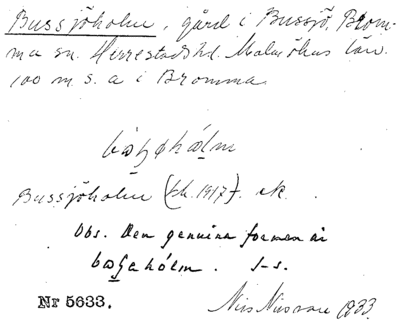 Bussjöholm, gård i Bussjö, Brom-
ma sn. Herrestads hd. Malmöhus län.
100 m. s. a i Bromma
Bussjöholm (bl. 1917). ek.
Obs. Den genuina formen är
I-s.
Nr 5633. Nils Nilsson 1933.